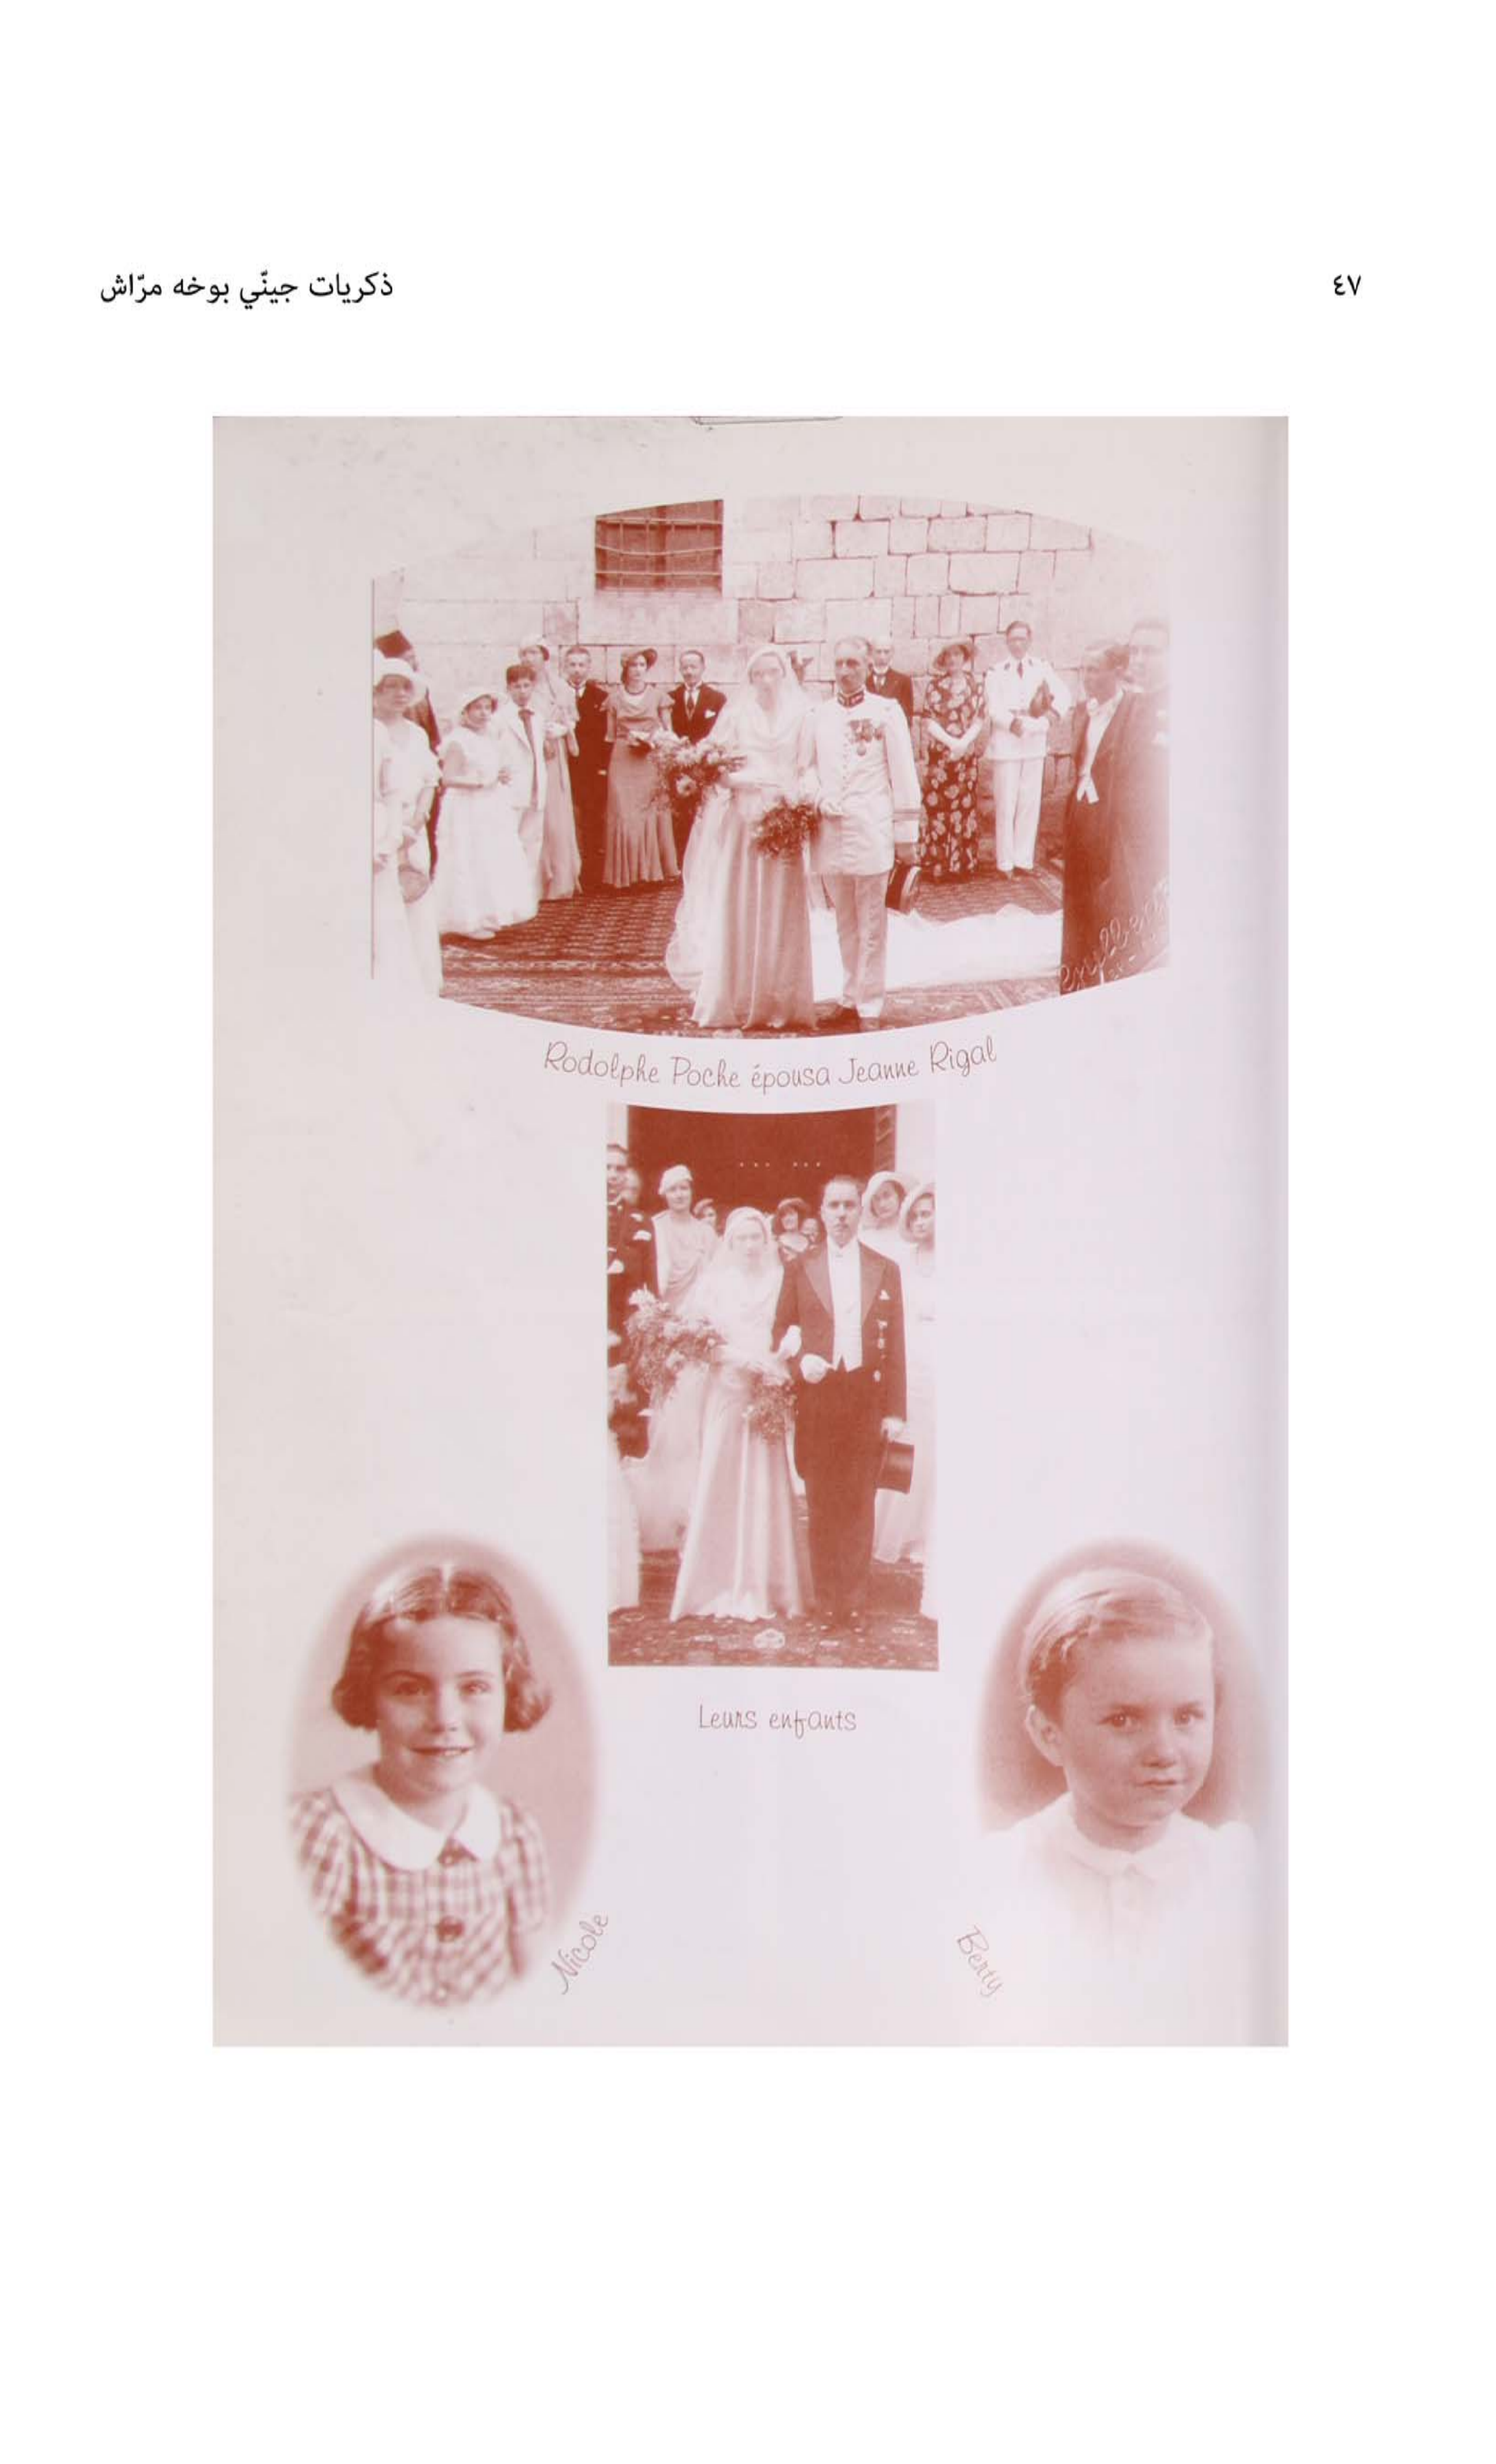 ذكريات جينّي بوخه مرّاش
٤٧
Rodolphe Poche épousa Jeanne Rigal
Leurs enfants
Nicole
Berty